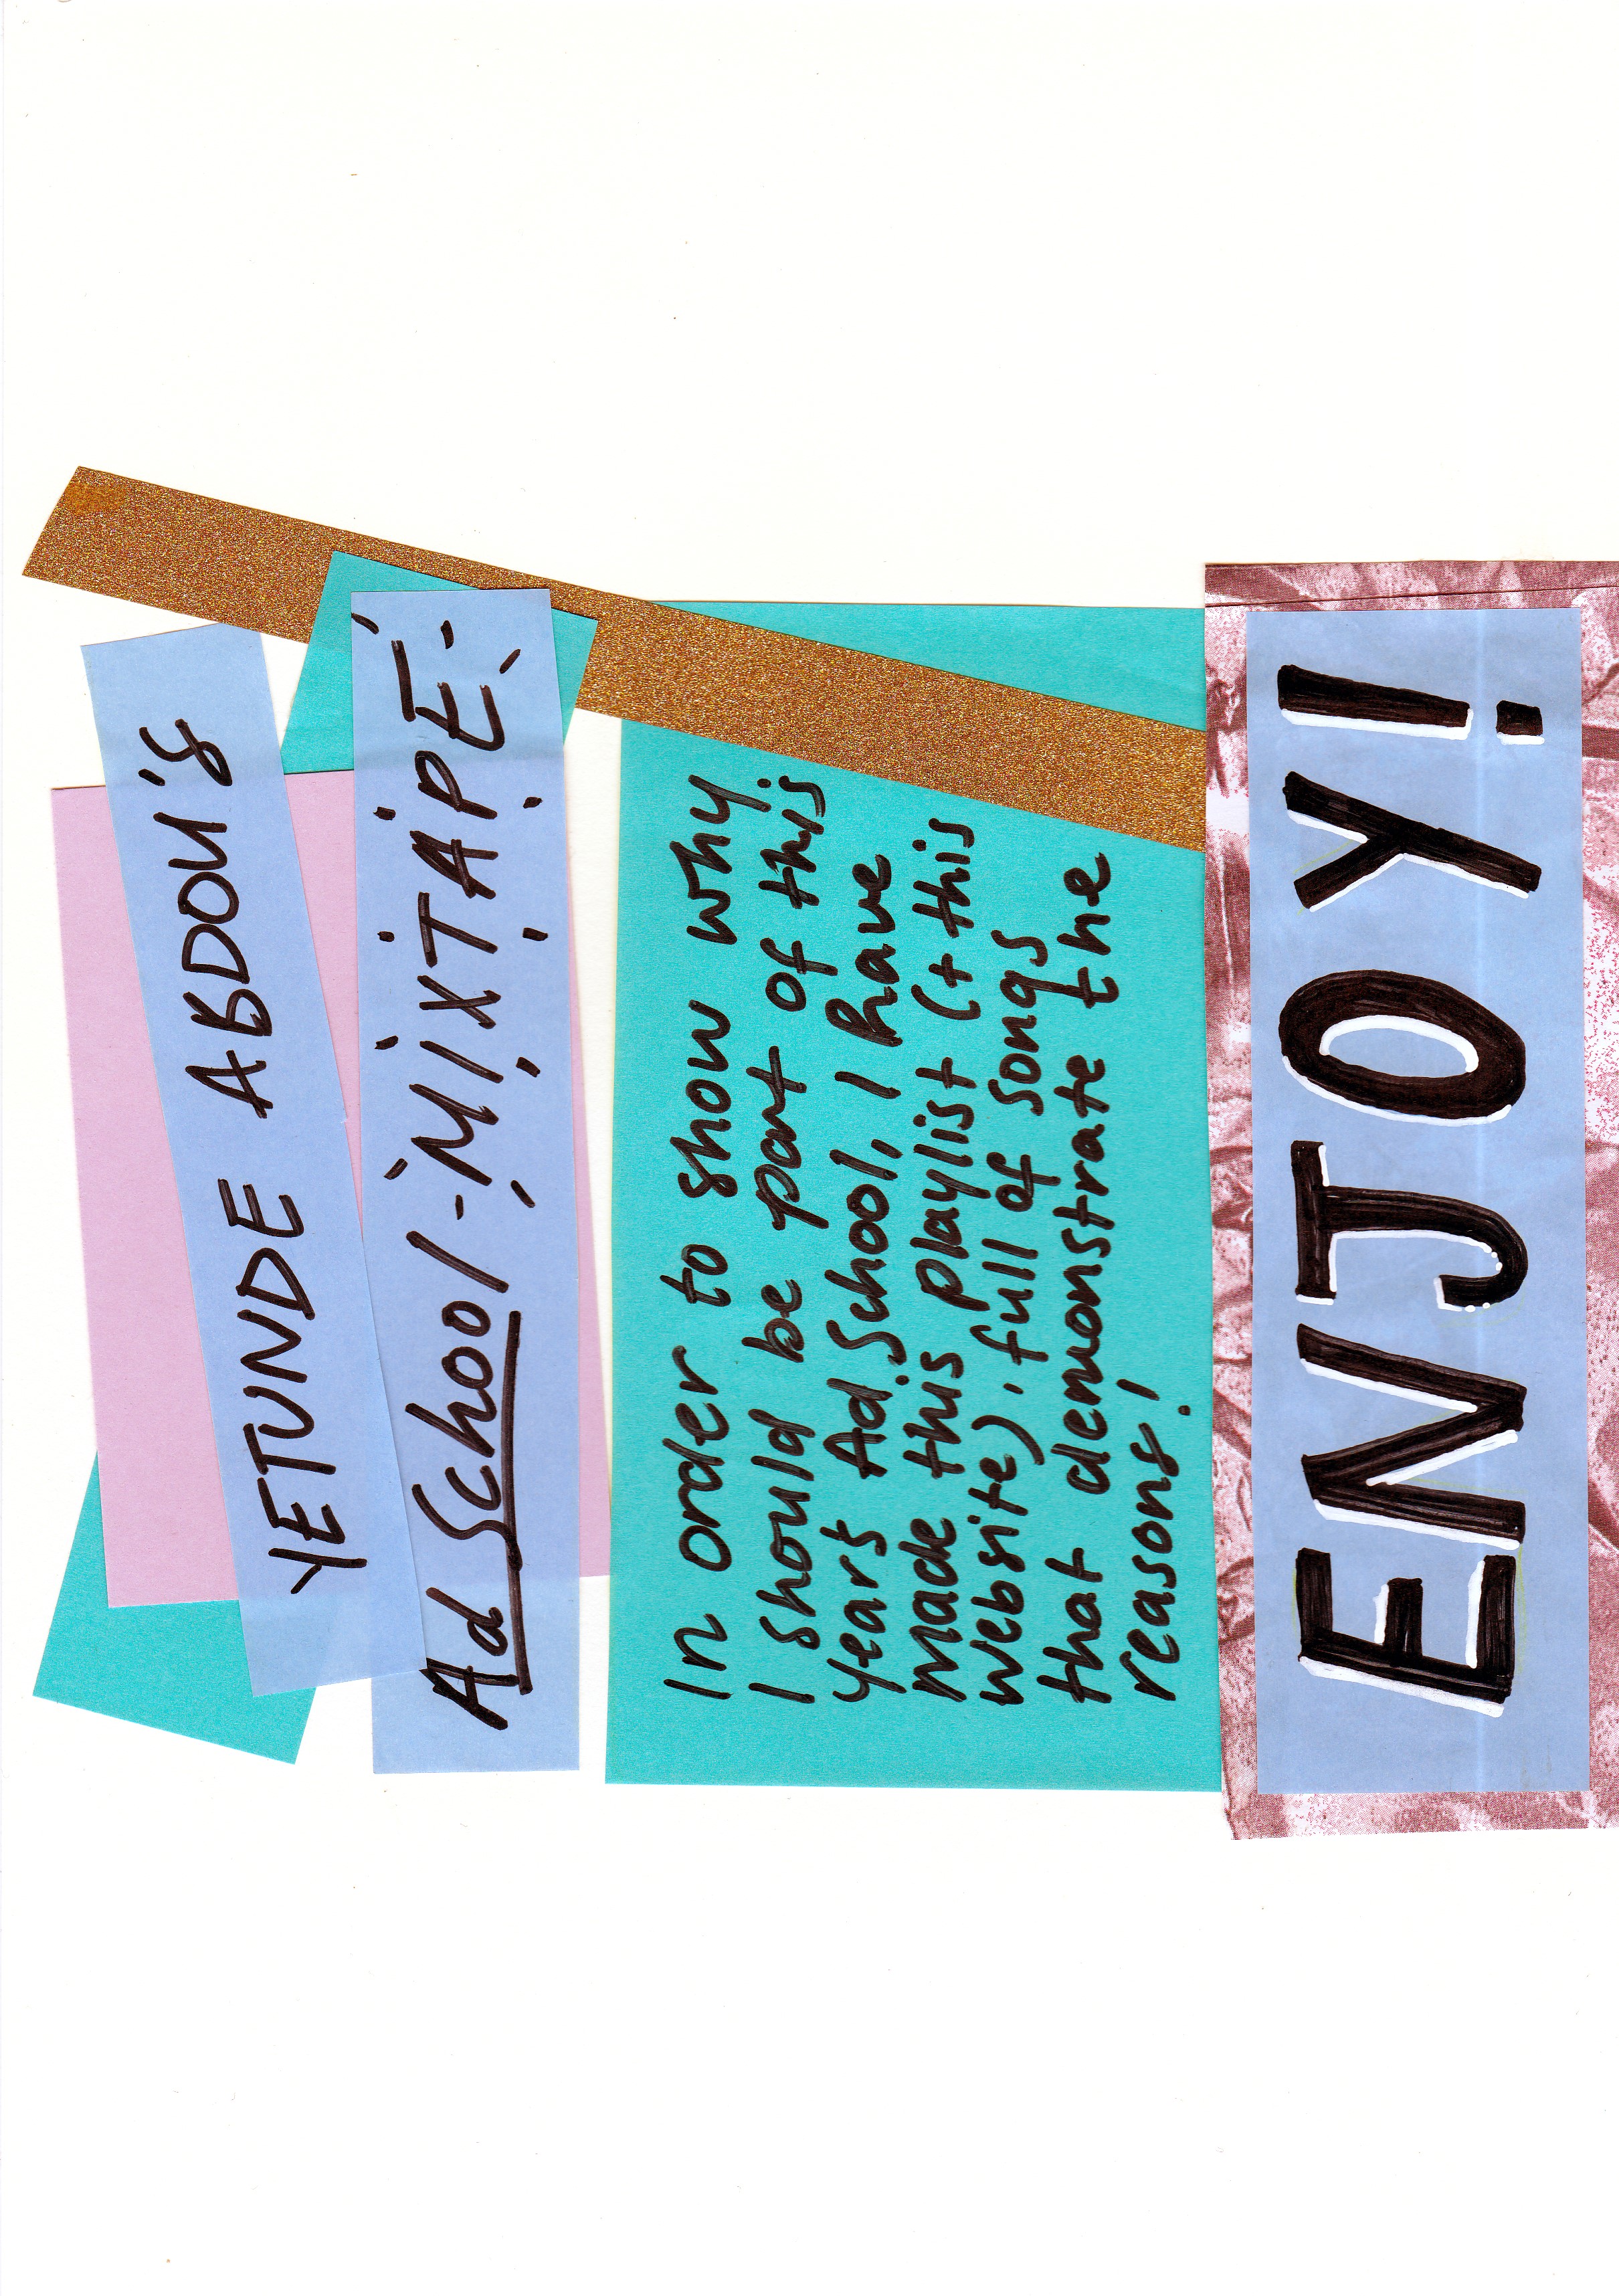 YETUNDE ABDOU'S
Ad School MIXTAPE
In order to show why
I should be part of this
year's Ad School, I have
made this playlist (+ this
website), full of songs
that demonstrate the
reasons!
ENJOY!